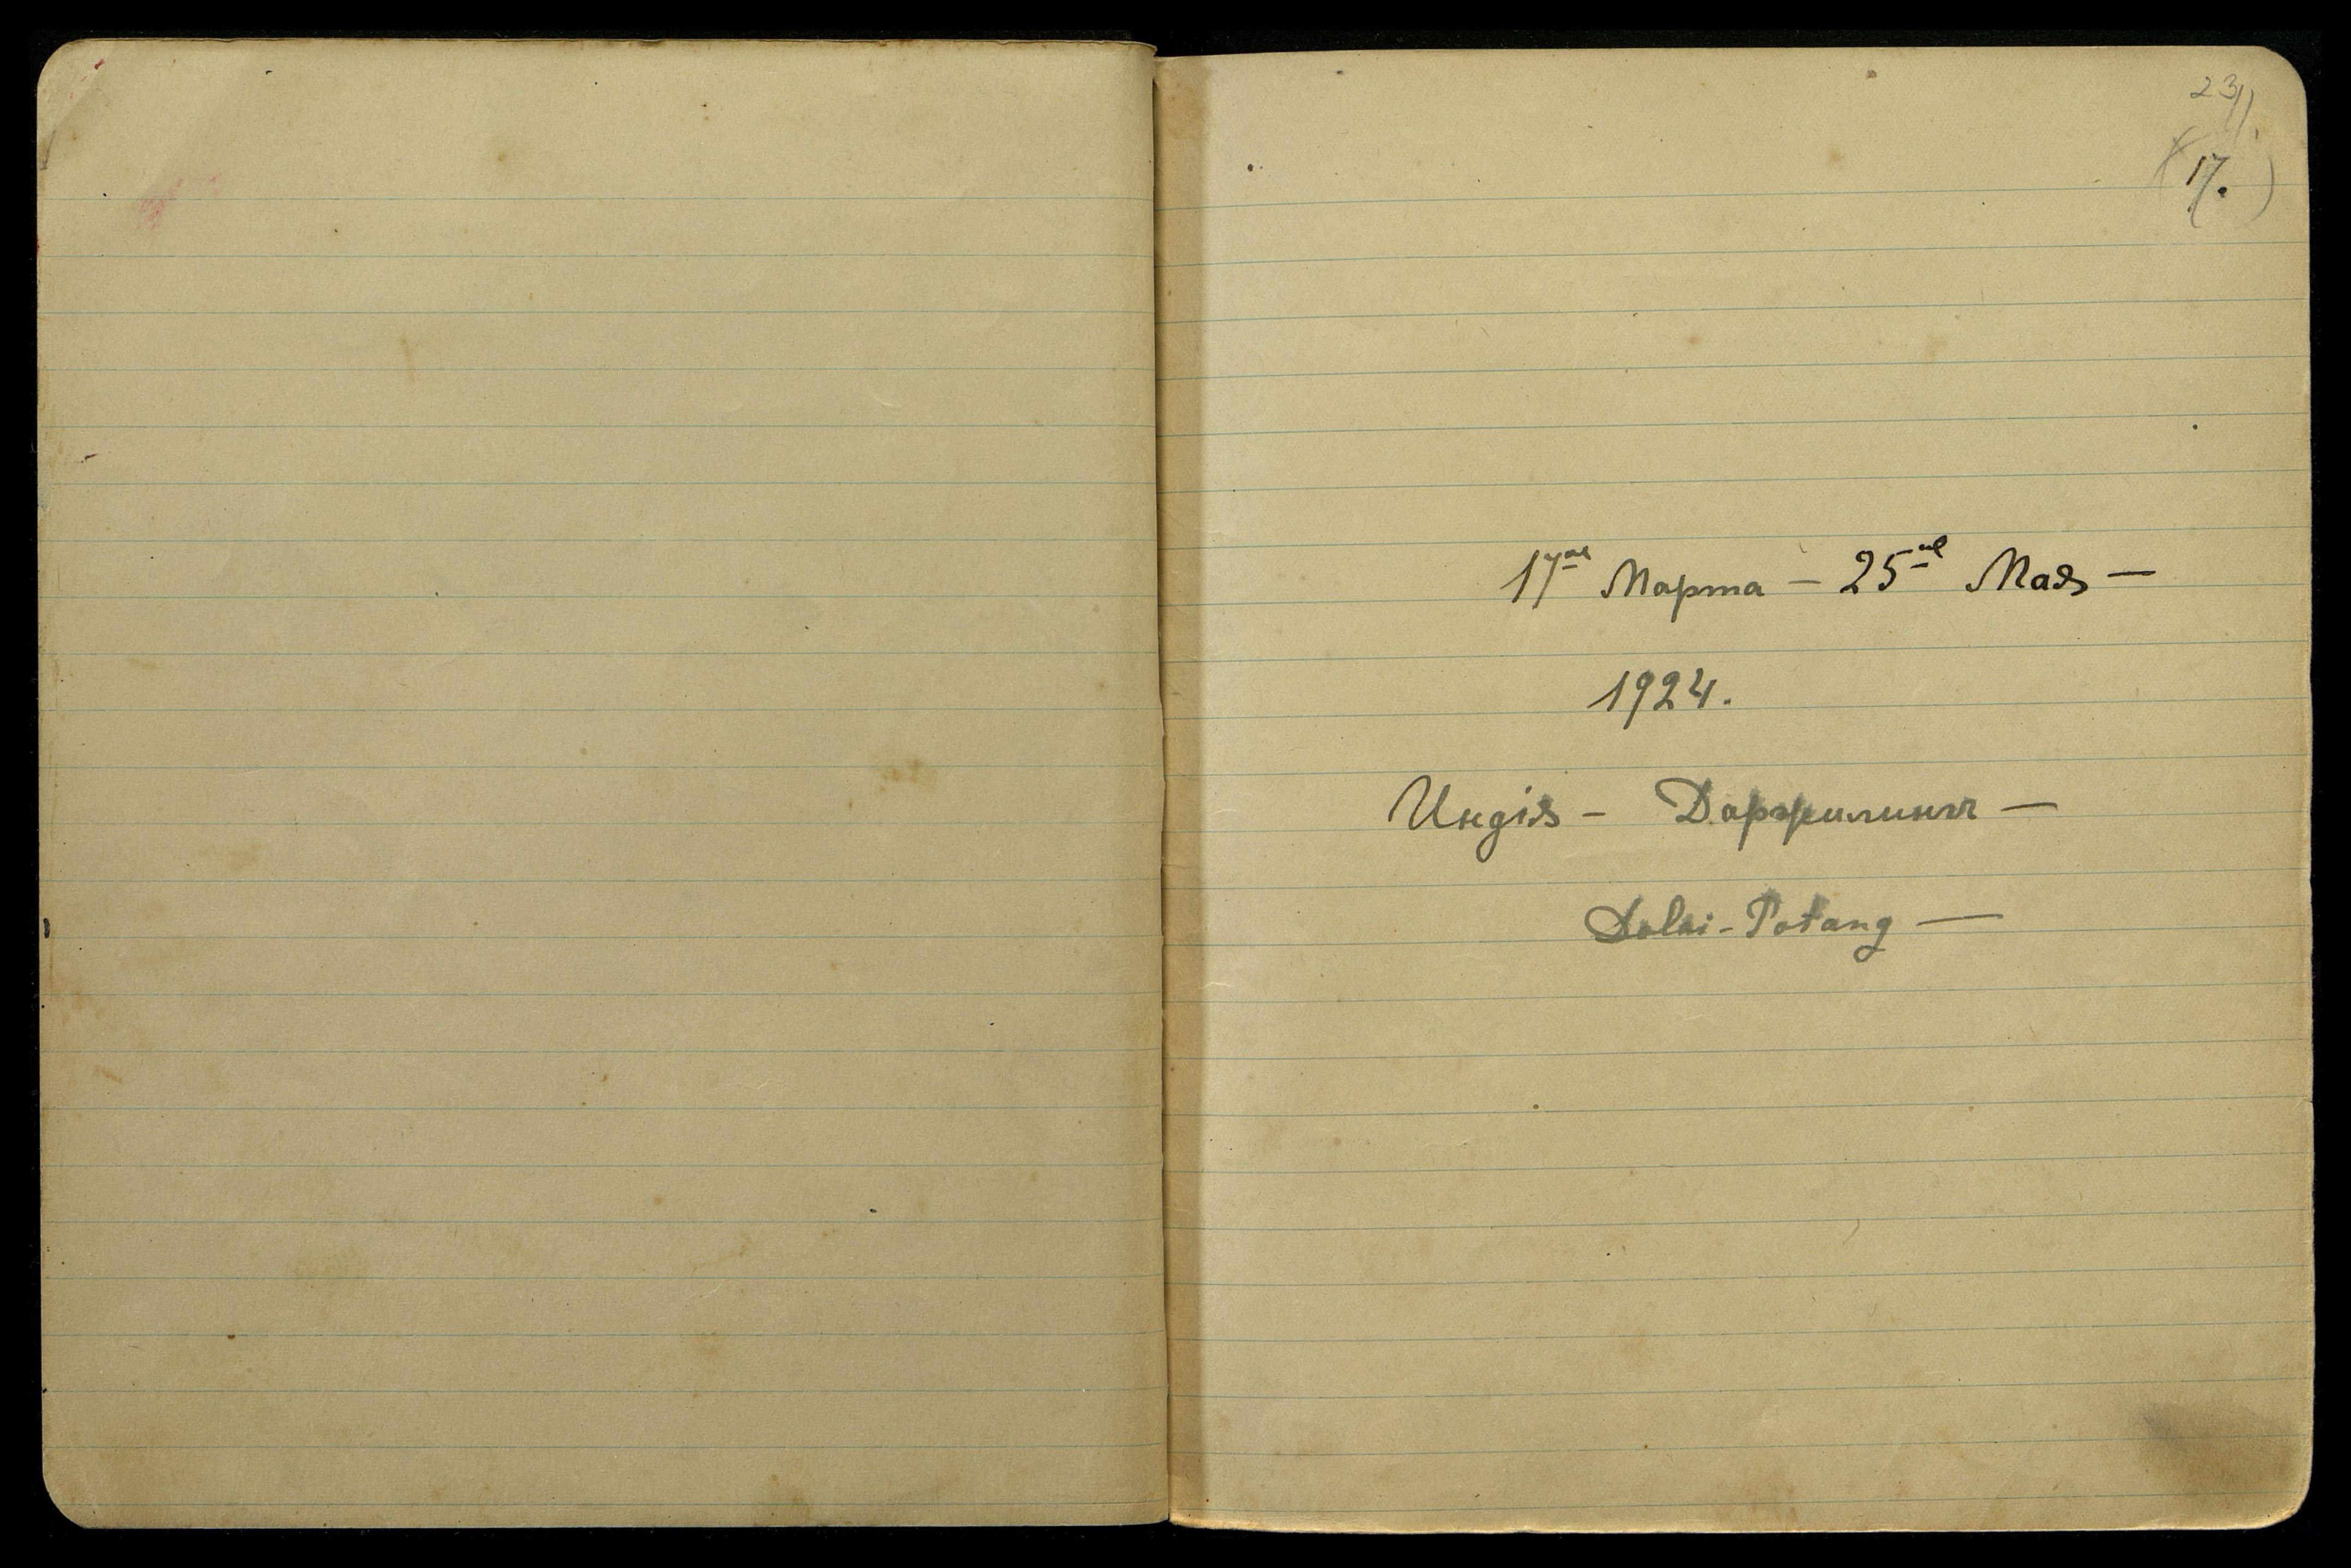 23
(17.)
17ое Марта — 25ое Мая —
1924.
Индія — Даржилинг —
Dalai-Potang —